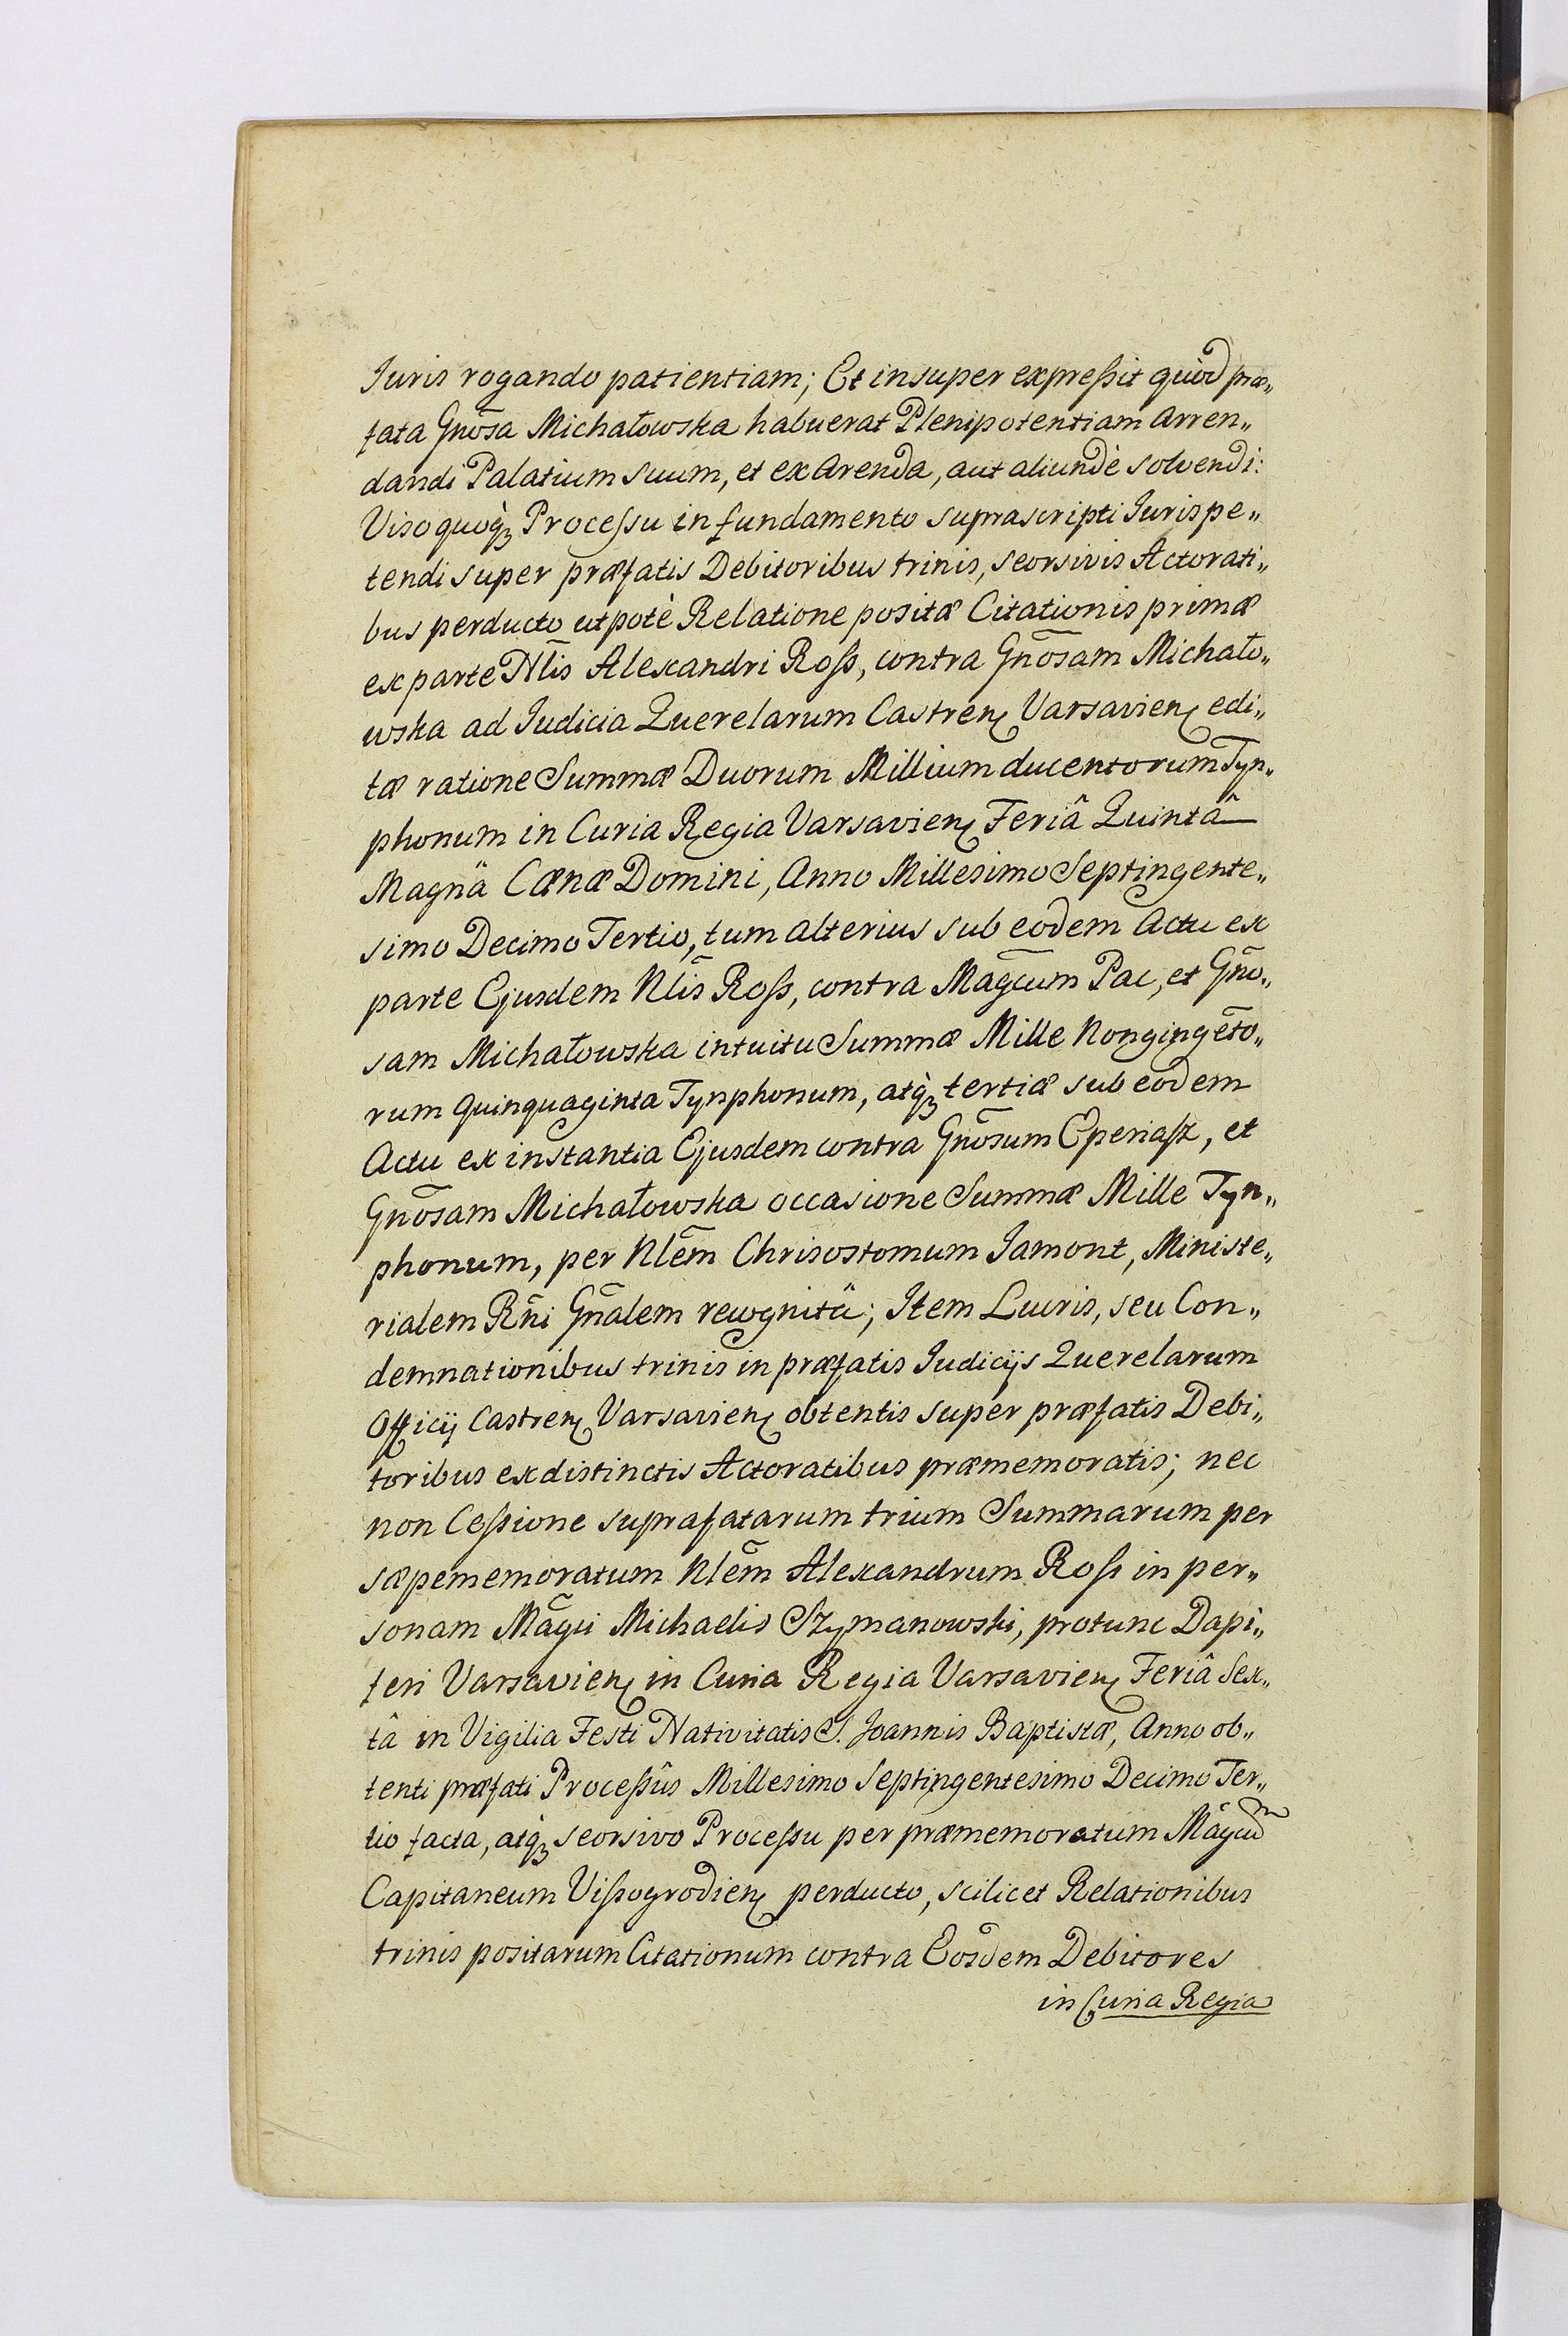 Iuris rogando patientiam; Et insuper expreßit quòd præ„
fata Gnõsa Michałowska habuerat Plenipotentiam Arren„
dandi Palatium suum, et ex Arenda, aut aliundè solvendi:
Viso quoq̀ʒ Proceſsu in fundamento suprascripti Iuris pe„
tendi super præfatis Debitoribus trinis, seorsivis Actorati„
bus perducto utpotè Relatione positæ Citationis primæ
ex parte Nlĩs Alexandri Roſs, contra Gnõsam Michało„
wska ad Iudicia Querelarum Castreñ Varsavieñ edi„
tæ ratione Summæ Duorum Millium ducentorum Tyn„
phonum in Curia Regia Varsavieñ Feriâ Quintâ
Magnâ Cænæ Domini, Anno Millesimo Septingente„
simo Decimo Tertio, tum alterius sub eodem Actu ex
parte Ejusdem Nlĩs Roſs, contra Mag̃cum Pac, et Gño„
sam Michałowska intuitu Summæ Mille Nongingẽto„
rum quinquaginta Tynphonum, atq̀ʒ tertiæ sub eodem
Actu ex instantia Ejusdem contra Gnõsum Eperiaſz, et
Gnõsam Michałowska occasione Summæ Mille Tyn„
phonum, per Nlẽm Chrisostomum Jamont, Ministe„
rialem Rñi Gñalem recognitâ; Item Lucris, seu Con„
demnationibus trinis in præfatis Iudicijs Querelarum
Officij Castreñ Varsavieñ obtentis super præfatis Debi„
toribus ex distinctis Actoratibus præmemoratis; nec
non Ceſsione suprafatarum trium Summarum per
sæpememoratum Nlẽm Alexandrum Roſs in per„
sonam Mag̃ci Michaelis Szymanowski, protunc Dapi„
feri Varsavieñ in Curia Regia Varsavieñ Feriâ Sex„
tâ in Vigilia Festi Nativitatis S. Joannis Baptistæ, Anno ob„
tenti præfati Proceſsûs Millesimo Septingentesimo Decimo Ter„
tio facta, atq̀ʒ seorsivo Proceſsu per præmemoratum Mag̃cum
Capitaneum Viſsogrodieñ perducto, scilicet Relationibus
trinis positarum Citationum contra Eosdem Debitores
in Curia Regia